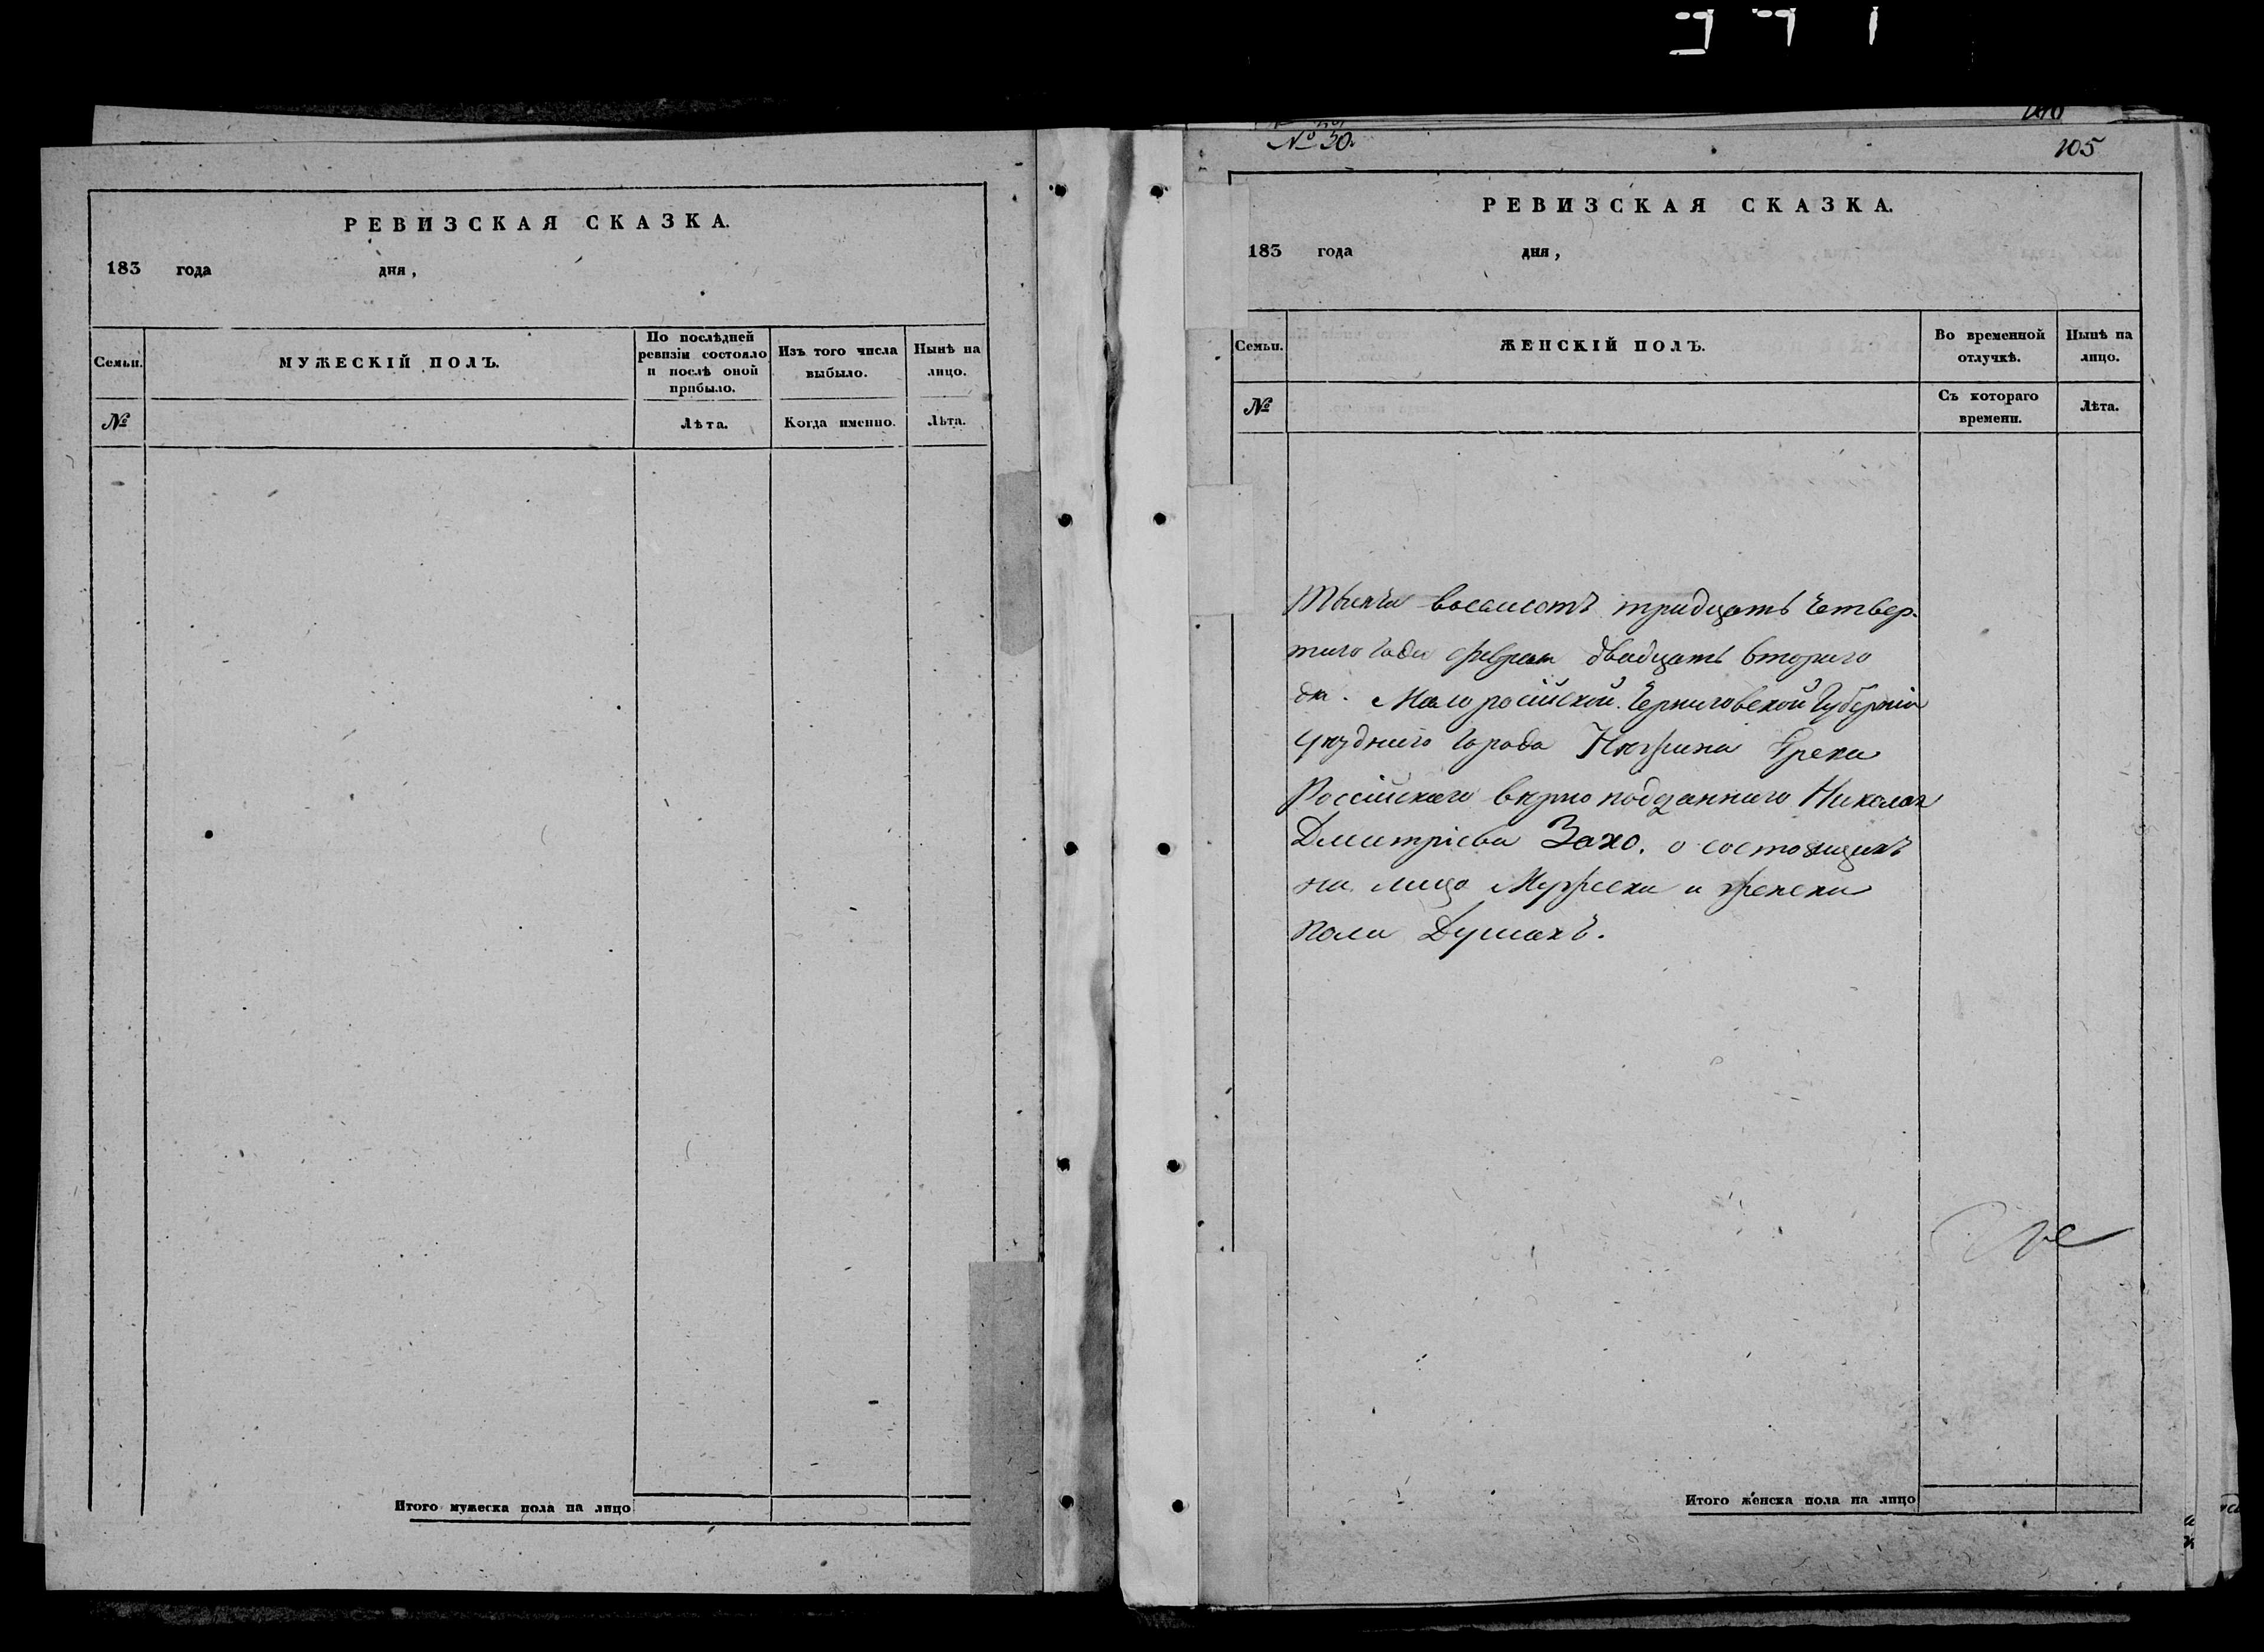 РЕВИЗСКАЯ СКАЗКА.
183 года дня,
Семьи.
МУЖЕСКІЙ ПОЛЪ.
По послѣдней
ревизіи состояло
и послѣ оной
прибыло.
Изъ того числа
выбыло.
Нынѣ на
лицо.
№
Лѣта.
Когда именно.
Лѣта.
Итого мужеска пола на лицо
№ 30.
105
РЕВИЗСКАЯ СКАЗКА.
183 года дня,
Семьи.
ЖЕНСКІЙ ПОЛЪ.
Во временной
отлучкѣ.
Нынѣ на
лицо.
№
Съ котораго
времени.
Лѣта.
Тысяча восемсотъ тридцать четвер-
таго года февраля двадцать втораго
дня. Малоросійской Черниговской Губерніи
уѣзднаго города Нѣжина Грека
Россійскаго вѣрно подданнаго Николая
Дмитріева Захо. о состоящихъ
на лицо Мужеска и женска
пола Душахъ.
Итого женска пола на лицо